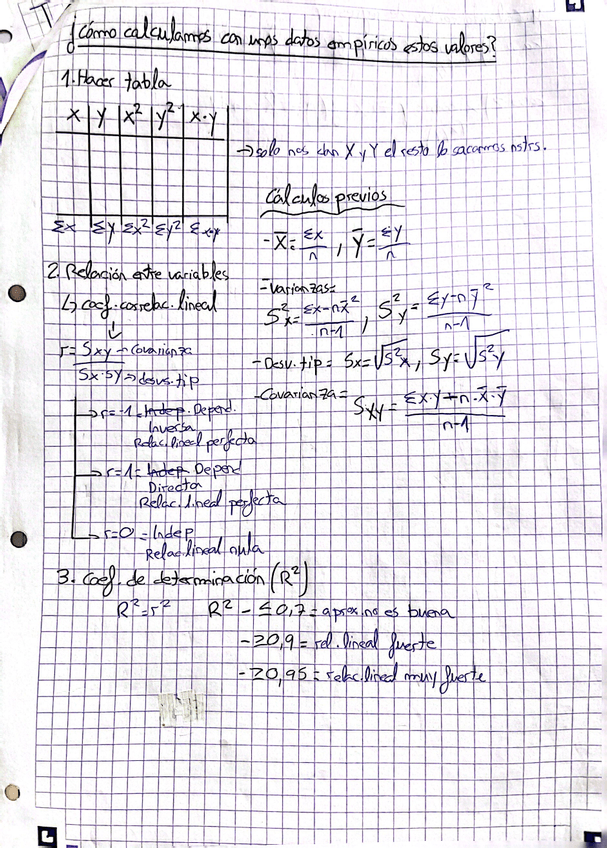 ¿Cómo calculamos con unos datos empíricos estos valores?
1. Hacer tabla
X | Y | X² | Y² | X·Y
→ solo nos dan X y Y el resto lo sacamos nstrs.
Σx Σy Σx² Σy² Σx·y
Cálculos previos
- X̄ = Σx/n , Ȳ = Σy/n
- Varianzas =
S²x = Σx-nx̄²/n-1 , S²y = Σy-nȳ²/n-1
- Desv. tip = Sx = √S²x , Sy = √S²y
- Covarianza = Sxy = Σx·y+n·x̄·ȳ/n-1
2. Relación entre variables
↳ coef. correlac. lineal
↓
r = Sxy → covarianza
Sx·Sy → desvs. tip
→ r=-1 = Indep. Depend.
Inversa
Relac. lineal perfecta
→ r=1 = Indep Depend
Directa
Relac. lineal perfecta
→ r=0 = Indep
Relac. lineal nula
3. Coef. de determinación (R²)
R²=r² R² - ≤0,7 = aprox. no es buena
- ≥0,9 = rel. lineal fuerte
- ≥0,95 = relac. lineal muy fuerte